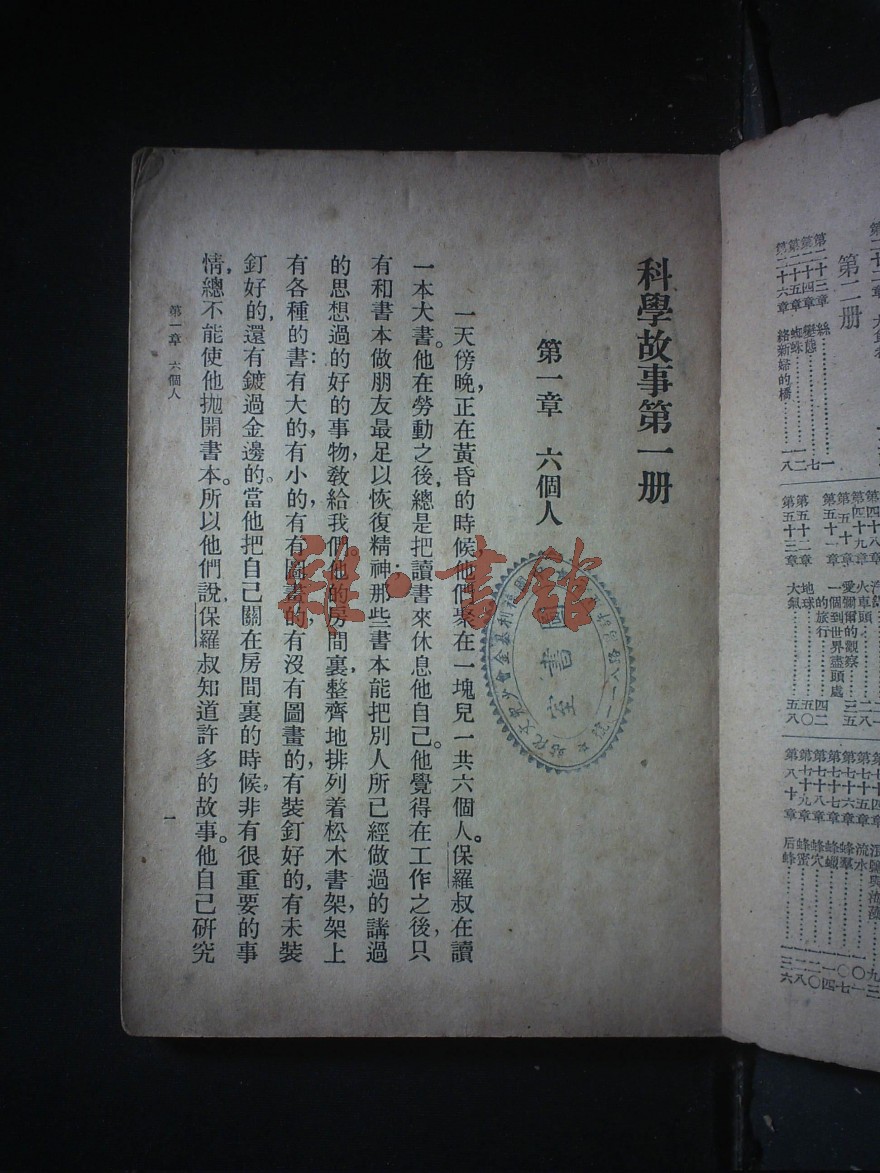 科學故事第一册
第一章　六個人
一天傍晚,正在黃昏的時候,他們聚在一塊兒一共六個人。保羅叔在讀
一本大書。他在勞動之後,總是把讀書來休息他自己。他覺得在工作之後,只
有和書本做朋友最足以恢復精神;那些書本能把別人所已經做過的講過
的思想過的好的事物,教給我們。他的房間裏整齊地排列着松木書架,架上
有各種的書:有大的,有小的,有有圖畫的,有沒有圖畫的,有裝釘好的,有未裝
釘好的,還有鍍過金邊的。當他把自己關在房間裏的時候,非有很重要的事
情,總不能使他拋開書本。所以他們說,保羅叔知道許多的故事。他自己研究
第一章 六個人
一
雜·書館
圖書室
第二册
第二十三章 絲……一
第二十四章 變態……七
第二十五章 蜘蛛……一二
第二十六章 絡新婦的橋……一八
第四十九章 火車頭
第五十章 愛彌爾的觀察……三五
第五十一章 一個到世界盡頭處
的旅行……四二
第五十二章 地球……五〇
第五十三章 大氣……五八
流水
第七十六章 蜂羣
第七十七章 蜂蠟
第七十八章 蜂穴
第七十九章 蜂蜜
第八十章 后蜂